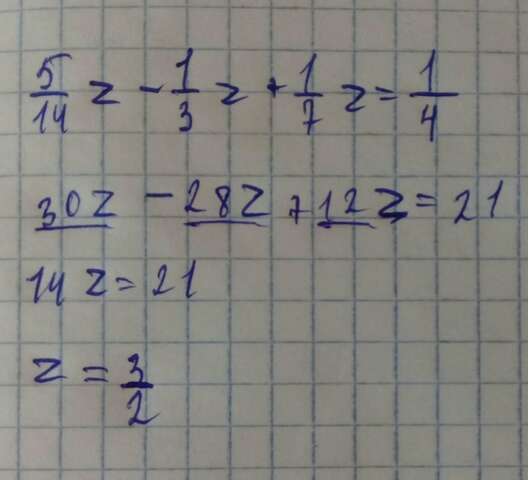 5/14 z - 1/3 z + 1/7 z = 1/4
30z - 28z + 12z = 21
14z = 21
z = 3/2